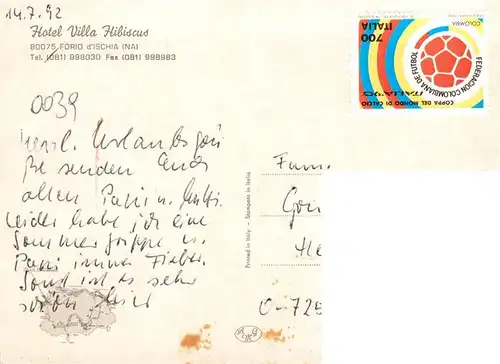 14.7.92
Hotel Villa Hibiscus
80075 FORIO d'ISCHIA (NA)
Tel. (081) 998030 Fax (081) 998983
0039
Herzl. Urlaubsgrü
ße senden Euch
allen Papi u. Mutti
leider habe ich eine
Sommergrippe u.
Papi immer Fieber.
Sonst ist es sehr
schön hier
Printed in Italy - Stampato in Italia
Fam
He
D-725
COLOMBIA
ITALIA 700
FEDERACION COLOMBIANA DE FUTBOL
COPPA DEL MONDO DI CALCIO
ITALIA '90